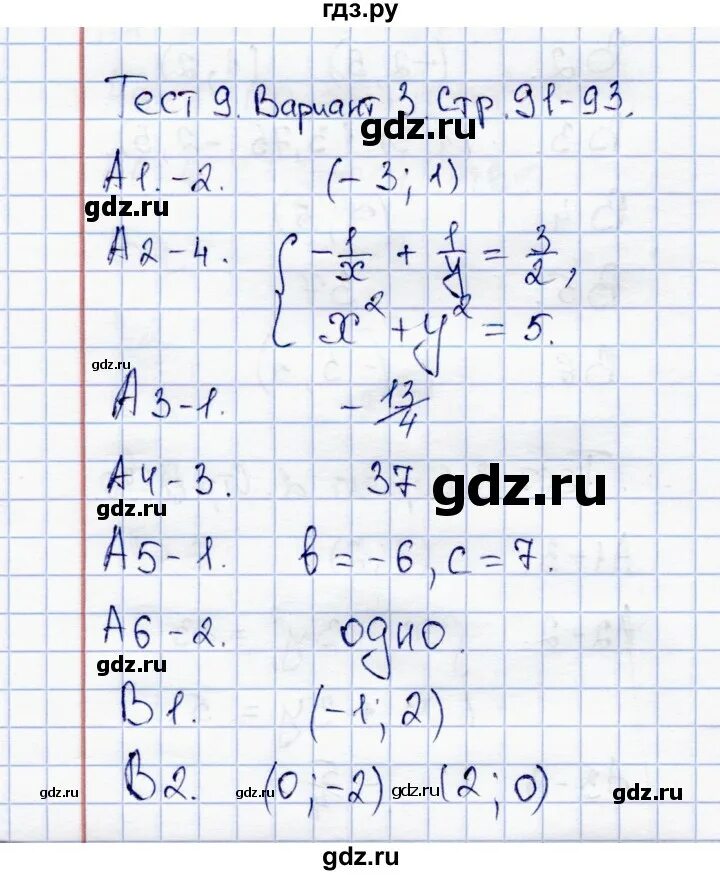 гдз.ру
Тест 9. Вариант 3 Стр. 91-93.
gdz.ru
А1.-2. (-3; 1)
gdz.ru
А2-4. { -1/x + 1/y = 3/2,
x² + y² = 5.
gdz.ru
А3-1. -13/4
А4-3. 37 gdz.ru
gdz.ru
А5-1. в = -6, с = 7.
А6-2. одно.
gdz.ru
В1. (-1; 2)
В2. (0; -2) (2; 0)
gdz.ru gdz.ru gdz.ru gdz.ru
gdz.ru